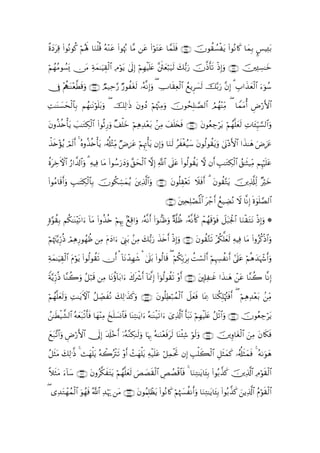 بَئِيسٍۭ بِمَا كَانُوا۟ يَفْسُقُونَ ﴿١٦٥﴾ فَلَمَّا عَتَوْا۟ عَن مَّا نُهُوا۟ عَنْهُ قُلْنَا لَهُمْ كُونُوا۟ قِرَدَةً
خَـٰسِـِٔينَ ﴿١٦٦﴾ وَإِذْ تَأَذَّنَ رَبُّكَ لَيَبْعَثَنَّ عَلَيْهِمْ إِلَىٰ يَوْمِ ٱلْقِيَـٰمَةِ مَن يَسُومُهُمْ
سُوٓءَ ٱلْعَذَابِ ۗ إِنَّ رَبَّكَ لَسَرِيعُ ٱلْعِقَابِ ۖ وَإِنَّهُۥ لَغَفُورٌ رَّحِيمٌ ﴿١٦٧﴾ وَقَطَّعْنَـٰهُمْ فِى
ٱلْأَرْضِ أُمَمًا ۖ مِّنْهُمُ ٱلصَّـٰلِحُونَ وَمِنْهُمْ دُونَ ذَٰلِكَ ۖ وَبَلَوْنَـٰهُم بِٱلْحَسَنَـٰتِ
وَٱلسَّيِّـَٔاتِ لَعَلَّهُمْ يَرْجِعُونَ ﴿١٦٨﴾ فَخَلَفَ مِنۢ بَعْدِهِمْ خَلْفٌ وَرِثُوا۟ ٱلْكِتَـٰبَ يَأْخُذُونَ
عَرَضَ هَـٰذَا ٱلْأَدْنَىٰ وَيَقُولُونَ سَيُغْفَرُ لَنَا وَإِن يَأْتِهِمْ عَرَضٌ مِّثْلُهُۥ يَأْخُذُوهُ ۚ أَلَمْ يُؤْخَذْ
عَلَيْهِم مِّيثَـٰقُ ٱلْكِتَـٰبِ أَن لَّا يَقُولُوا۟ عَلَى ٱللَّهِ إِلَّا ٱلْحَقَّ وَدَرَسُوا۟ مَا فِيهِ ۗ وَٱلدَّارُ ٱلْـَٔاخِرَةُ
خَيْرٌ لِّلَّذِينَ يَتَّقُونَ ۗ أَفَلَا تَعْقِلُونَ ﴿١٦٩﴾ وَٱلَّذِينَ يُمَسِّكُونَ بِٱلْكِتَـٰبِ وَأَقَامُوا۟
ٱلصَّلَوٰةَ إِنَّا لَا نُضِيعُ أَجْرَ ٱلْمُصْلِحِينَ ﴿١٧٠﴾
۞ وَإِذْ نَتَقْنَا ٱلْجَبَلَ فَوْقَهُمْ كَأَنَّهُۥ ظُلَّةٌ وَظَنُّوٓا۟ أَنَّهُۥ وَاقِعٌۢ بِهِمْ خُذُوا۟ مَآ ءَاتَيْنَـٰكُم بِقُوَّةٍ
وَٱذْكُرُوا۟ مَا فِيهِ لَعَلَّكُمْ تَتَّقُونَ ﴿١٧١﴾ وَإِذْ أَخَذَ رَبُّكَ مِنۢ بَنِىٓ ءَادَمَ مِن ظُهُورِهِمْ ذُرِّيَّتَهُمْ
وَأَشْهَدَهُمْ عَلَىٰٓ أَنفُسِهِمْ أَلَسْتُ بِرَبِّكُمْ ۖ قَالُوا۟ بَلَىٰ ۛ شَهِدْنَآ ۛ أَن تَقُولُوا۟ يَوْمَ ٱلْقِيَـٰمَةِ
إِنَّا كُنَّا عَنْ هَـٰذَا غَـٰفِلِينَ ﴿١٧٢﴾ أَوْ تَقُولُوٓا۟ إِنَّمَآ أَشْرَكَ ءَابَآؤُنَا مِن قَبْلُ وَكُنَّا ذُرِّيَّةً
مِّنۢ بَعْدِهِمْ ۖ أَفَتُهْلِكُنَا بِمَا فَعَلَ ٱلْمُبْطِلُونَ ﴿١٧٣﴾ وَكَذَٰلِكَ نُفَصِّلُ ٱلْـَٔايَـٰتِ وَلَعَلَّهُمْ
يَرْجِعُونَ ﴿١٧٤﴾ وَٱتْلُ عَلَيْهِمْ نَبَأَ ٱلَّذِىٓ ءَاتَيْنَـٰهُ ءَايَـٰتِنَا فَٱنسَلَخَ مِنْهَا فَأَتْبَعَهُ ٱلشَّيْطَـٰنُ
فَكَانَ مِنَ ٱلْغَاوِينَ ﴿١٧٥﴾ وَلَوْ شِئْنَا لَرَفَعْنَـٰهُ بِهَا وَلَـٰكِنَّهُۥٓ أَخْلَدَ إِلَى ٱلْأَرْضِ وَٱتَّبَعَ
هَوَىٰهُ ۚ فَمَثَلُهُۥ كَمَثَلِ ٱلْكَلْبِ إِن تَحْمِلْ عَلَيْهِ يَلْهَثْ أَوْ تَتْرُكْهُ يَلْهَث ۚ ذَّٰلِكَ مَثَلُ
ٱلْقَوْمِ ٱلَّذِينَ كَذَّبُوا۟ بِـَٔايَـٰتِنَا ۚ فَٱقْصُصِ ٱلْقَصَصَ لَعَلَّهُمْ يَتَفَكَّرُونَ ﴿١٧٦﴾ سَآءَ مَثَلًا
ٱلْقَوْمُ ٱلَّذِينَ كَذَّبُوا۟ بِـَٔايَـٰتِنَا وَأَنفُسَهُمْ كَانُوا۟ يَظْلِمُونَ ﴿١٧٧﴾ مَن يَهْدِ ٱللَّهُ فَهُوَ ٱلْمُهْتَدِى ۖ